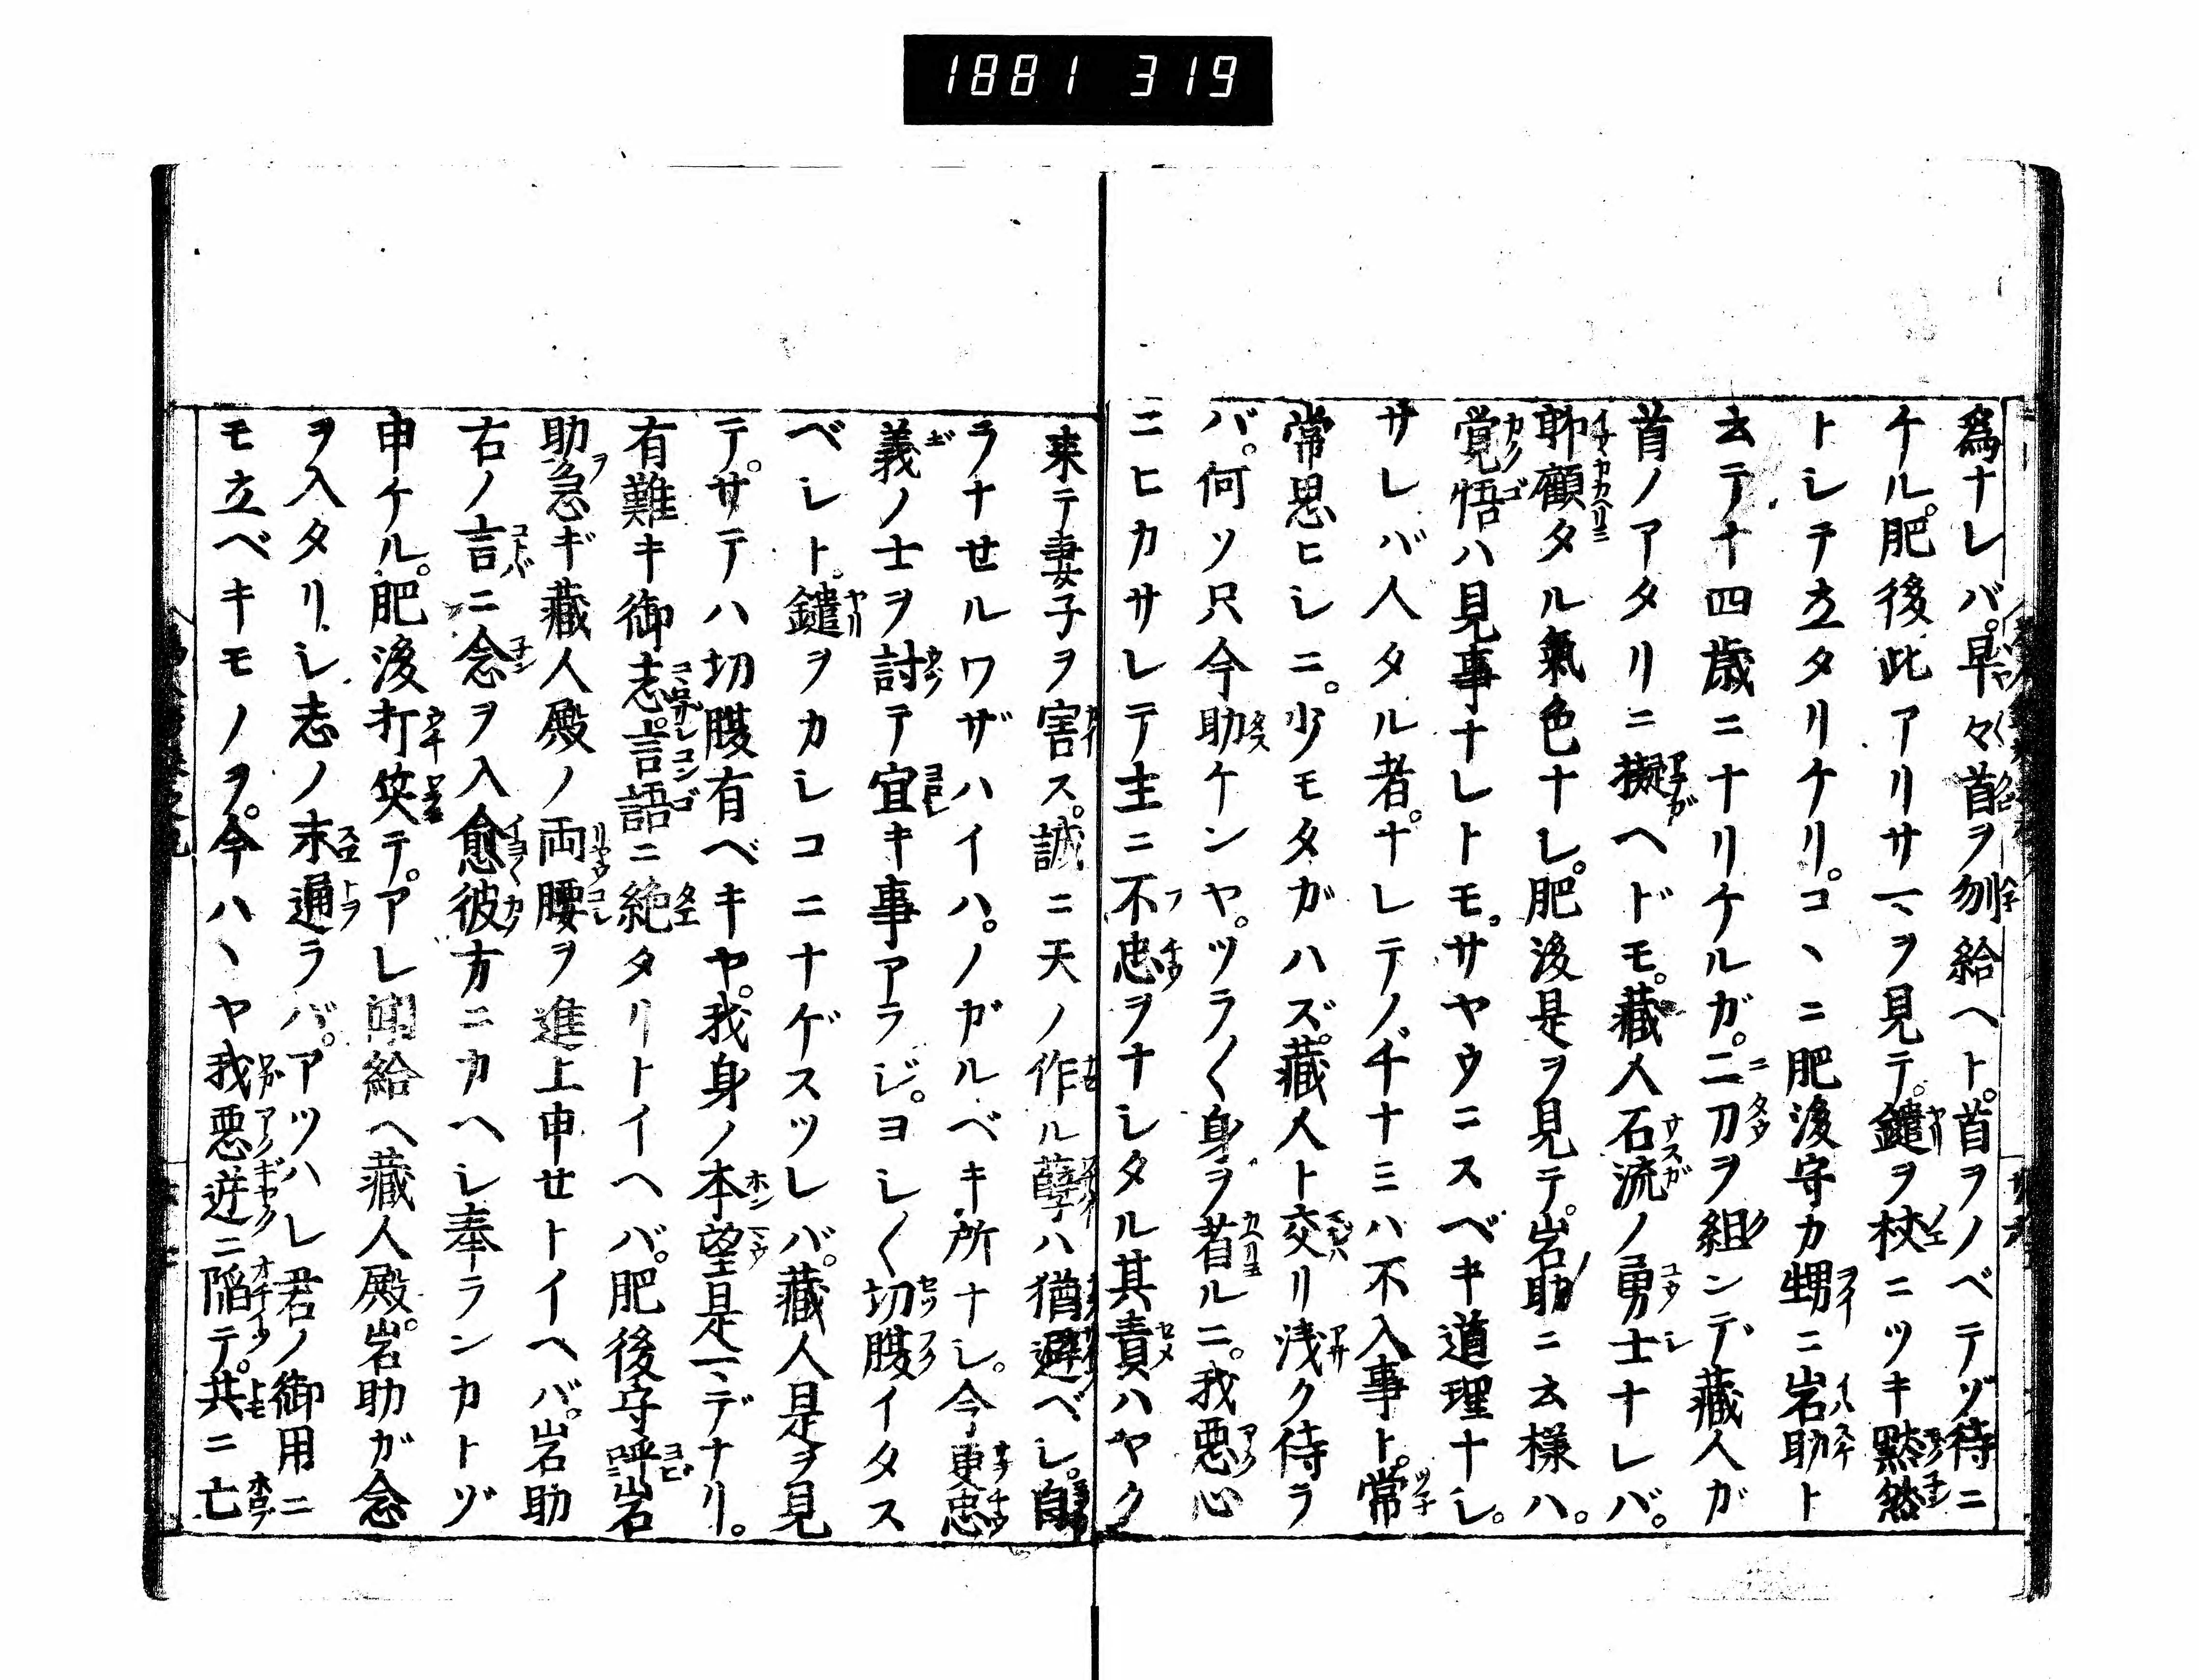 1881 319
爲ナレバ。早々首ヲ刎給ヘト。首ヲノベテゾ待ニ
ケル。肥後此アリサマヲ見テ。鑓ヲ杖ニツキ黙然
トシテ立タリケリ。コヽニ肥後守カ甥ニ岩助ト
云テ十四歳ニナリケルガ。二刀ヲ組ンデ藏人ガ
首ノアタリニ擬ヘドモ。藏人石流ノ勇士ナレバ。
顧タル氣色ナし。肥後是ヲ見テ。岩助ニ云様ハ。
覚悟ハ見事ナレトモ。サヤウニスベキ道理ナシ。
サレバ人タル者。ナレテノ千ナミハ不入事ト。常
常思ヒシニ。少モタガハズ。藏人ト交リ浅ク待ラ
バ。何ソ只今助ケンヤ。ツラ〱身ヲ省ルニ。我悪心
ニヒカサレテ主ニ不忠ヲナシタル其責ハヤク
来テ妻子ヲ害ス。誠ニ天ノ作ル孽ハ猶避ベシ。自
ラナセルワザハイハ。ノガルベキ所ナシ。今更忠
義ノ士ヲ討テ宜キ事アラジ。ヨシ〱切腹イタス
ベシト。鑓ヲカシコニナゲスツレバ。藏人是ヲ見
テ。サテハ切腹有ベキヤ。我身ノ本望是マデナリ。
有難キ御志。言語ニ絶タリトイヘバ。肥後守呼岩
助急ギ藏人殿ノ両腰ヲ進上申せトイヘバ。岩助
右ノ言ニ念ヲ入愈彼方ニカヘシ奉ランカトゾ
申ケル。肥後打笑テ。アレ聞給ヘ藏人殿。岩助が念
ヲ入タリシ志ノ末通ラバ。アツハレ君ノ御用ニ
モ立ベキモノヲ。今ハヽヤ我悪逆ニ陥テ。共ニ亡